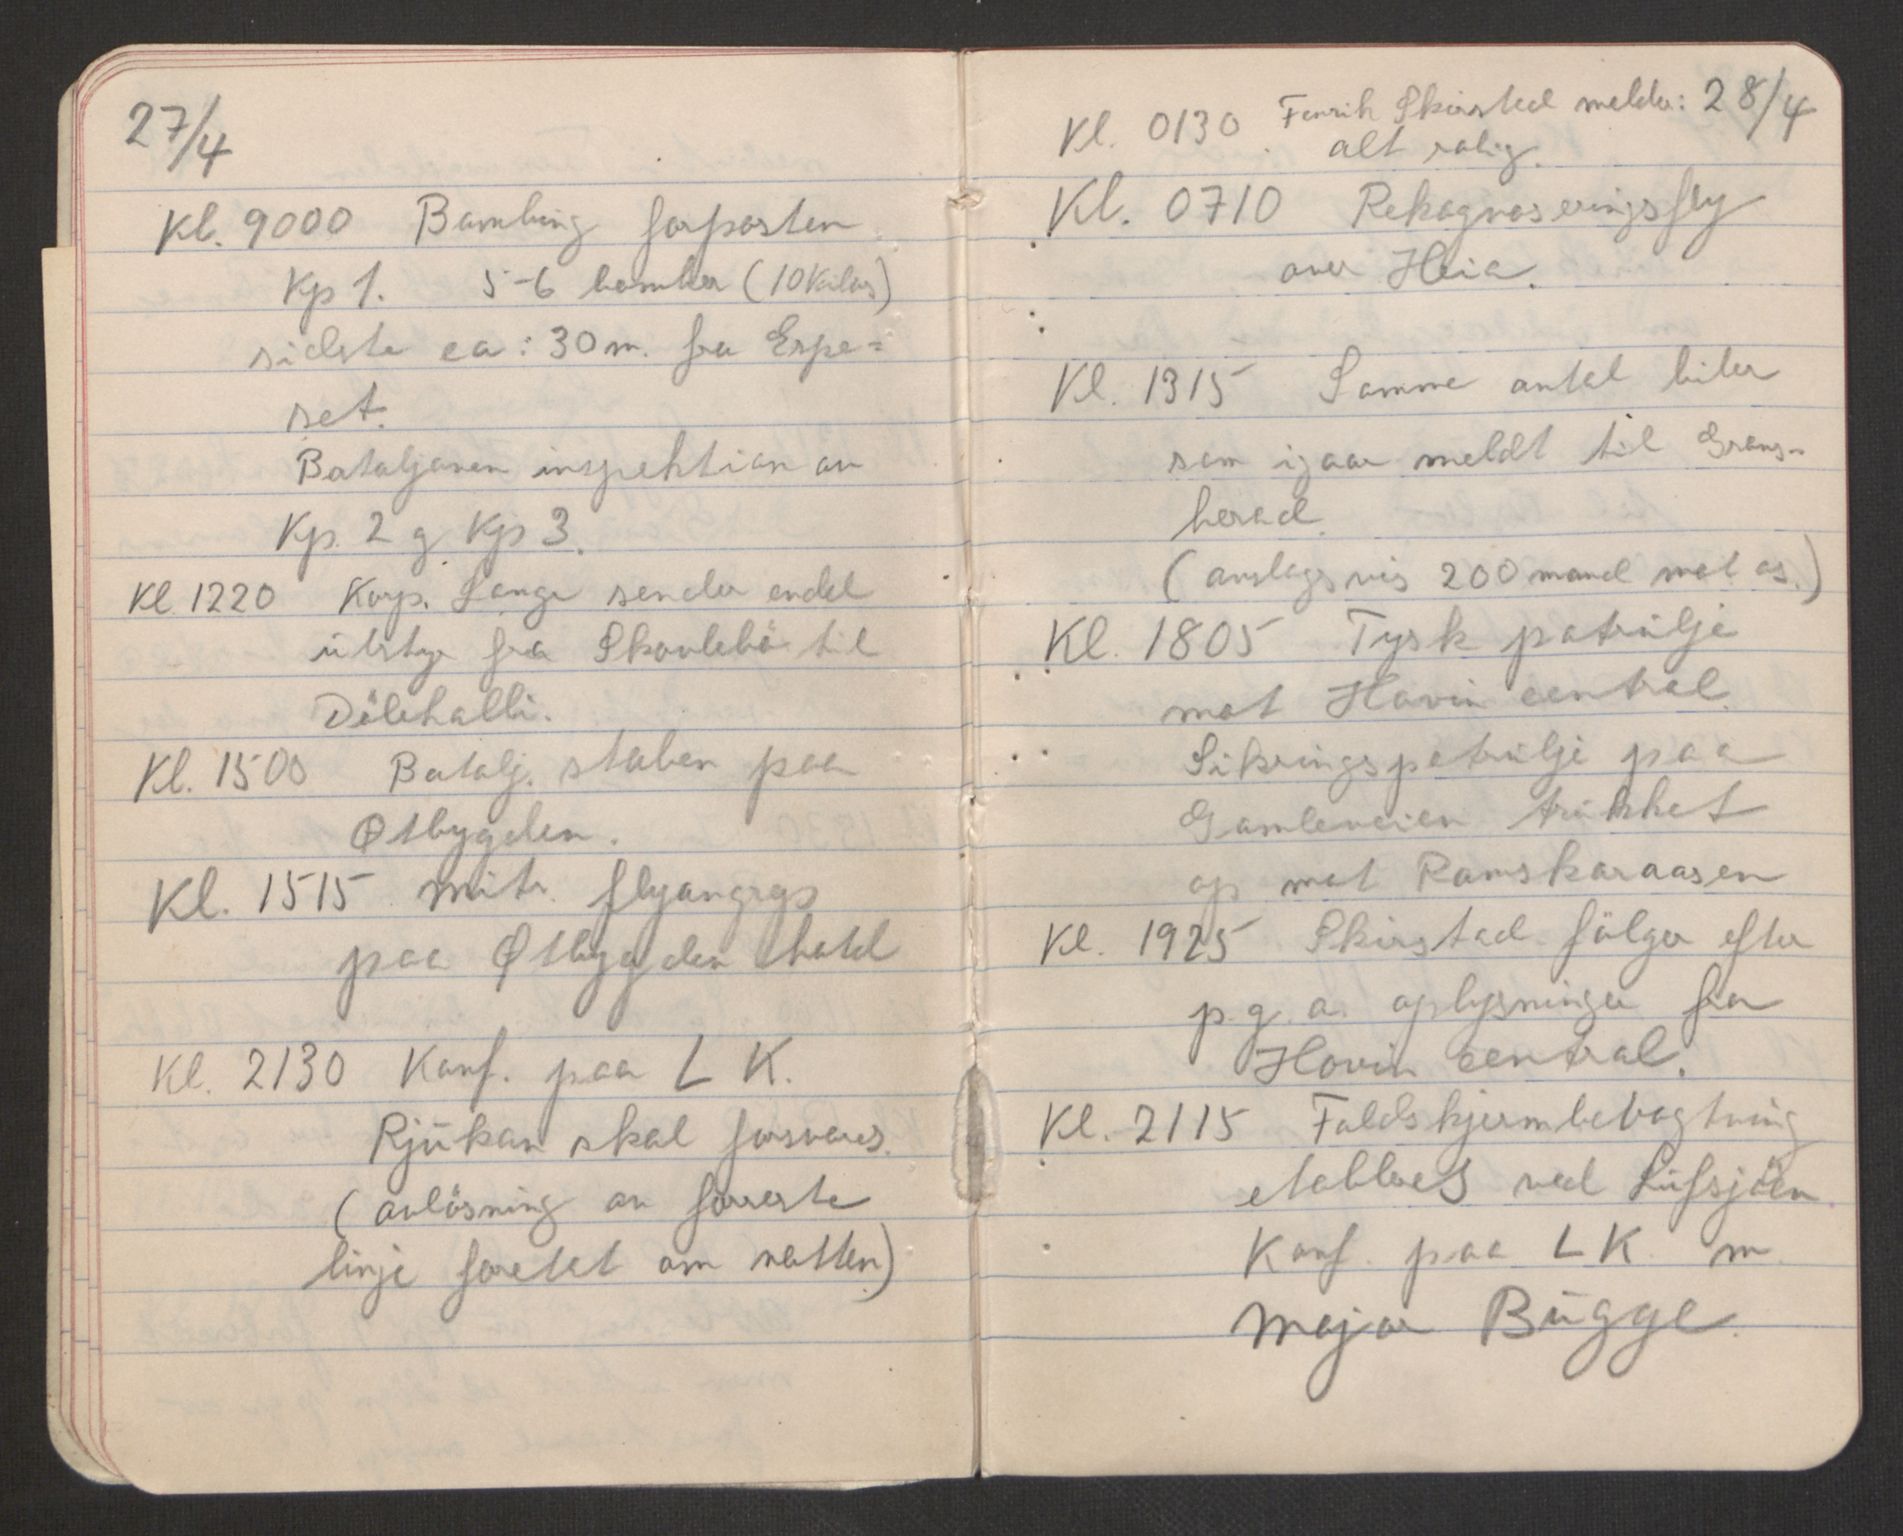 27/4
Kl. 9000 Bombing forposten
Kp 1. 5-6 bomber (10 Kilos)
sidste ca: 30 m. fra Espe=
set.
Bataljonen inspektion av
Kp. 2 g Kp 3.
Kl 1220 Korp. Lange sender endel
utstyr fra Skovlebö til
Dölehalli.
Kl. 1500 Batalj. staben paa
Østbygden.
Kl. 1515 Mitr. flyangrep
paa Østbygden hotel
Kl. 2130 Konf. paa L K.
Rjukan skal forsvares.
(avlösning av forreste
linje foretat om natten)
Kl. 0130 Fenrik Skirstad melder: 28/4
alt rolig.
Kl. 0710 Rekognoseringsfly
over Heia.
Kl. 1315 Samme antal biler
som igaar meldt til Grans-
herad.
(anslagsvis 200 mand mot os.)
Kl. 1805 Tysk patrulje
mot Hovin central.
Sikringspatrulje paa
Gamleveien trukket
op mot Ramskaraasen
Kl. 1925 Skirstad fölger efter
p. g. a. oplysninger fra
Hovin central.
Kl. 2115 Faldskjermbevogtning
etableres ved Lufsjöen
Konf. paa L K m.
Major Bugge.